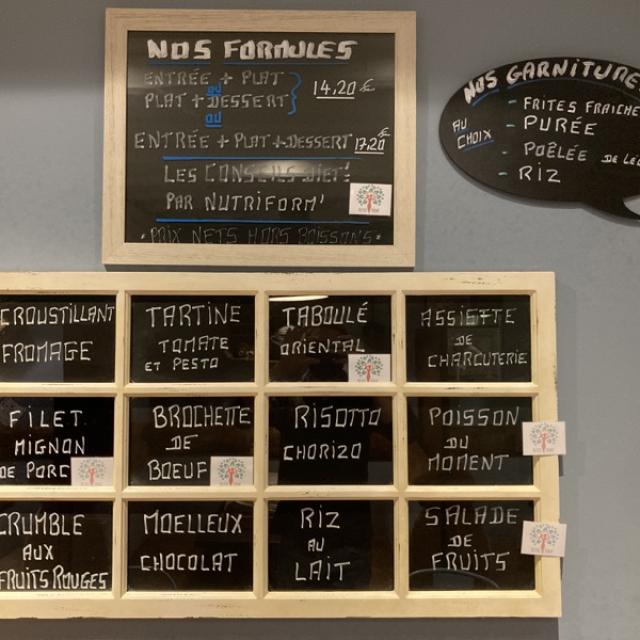 NOS FORMULES
ENTRÉE + PLAT
OU
PLAT + DESSERT
14,20 €
OU
ENTRÉE + PLAT + DESSERT 17,20 €
LES CONSEILS DIET'
PAR NUTRIFORM'
• PRIX NETS HORS BOISSONS •
NOS GARNITURES
AU
CHOIX
- FRITES FRAICHE
- PURÉE
- POÊLÉE DE
- RIZ
CROUSTILLANT
FROMAGE
TARTINE
TOMATE
ET PESTO
TABOULÉ
ORIENTAL
ASSIETTE
DE
CHARCUTERIE
FILET
MIGNON
DE PORC
BROCHETTE
DE
BOEUF
RISOTTO
CHORIZO
POISSON
DU
MOMENT
CRUMBLE
AUX
FRUITS ROUGES
MOELLEUX
CHOCOLAT
RIZ
AU
LAIT
SALADE
DE
FRUITS